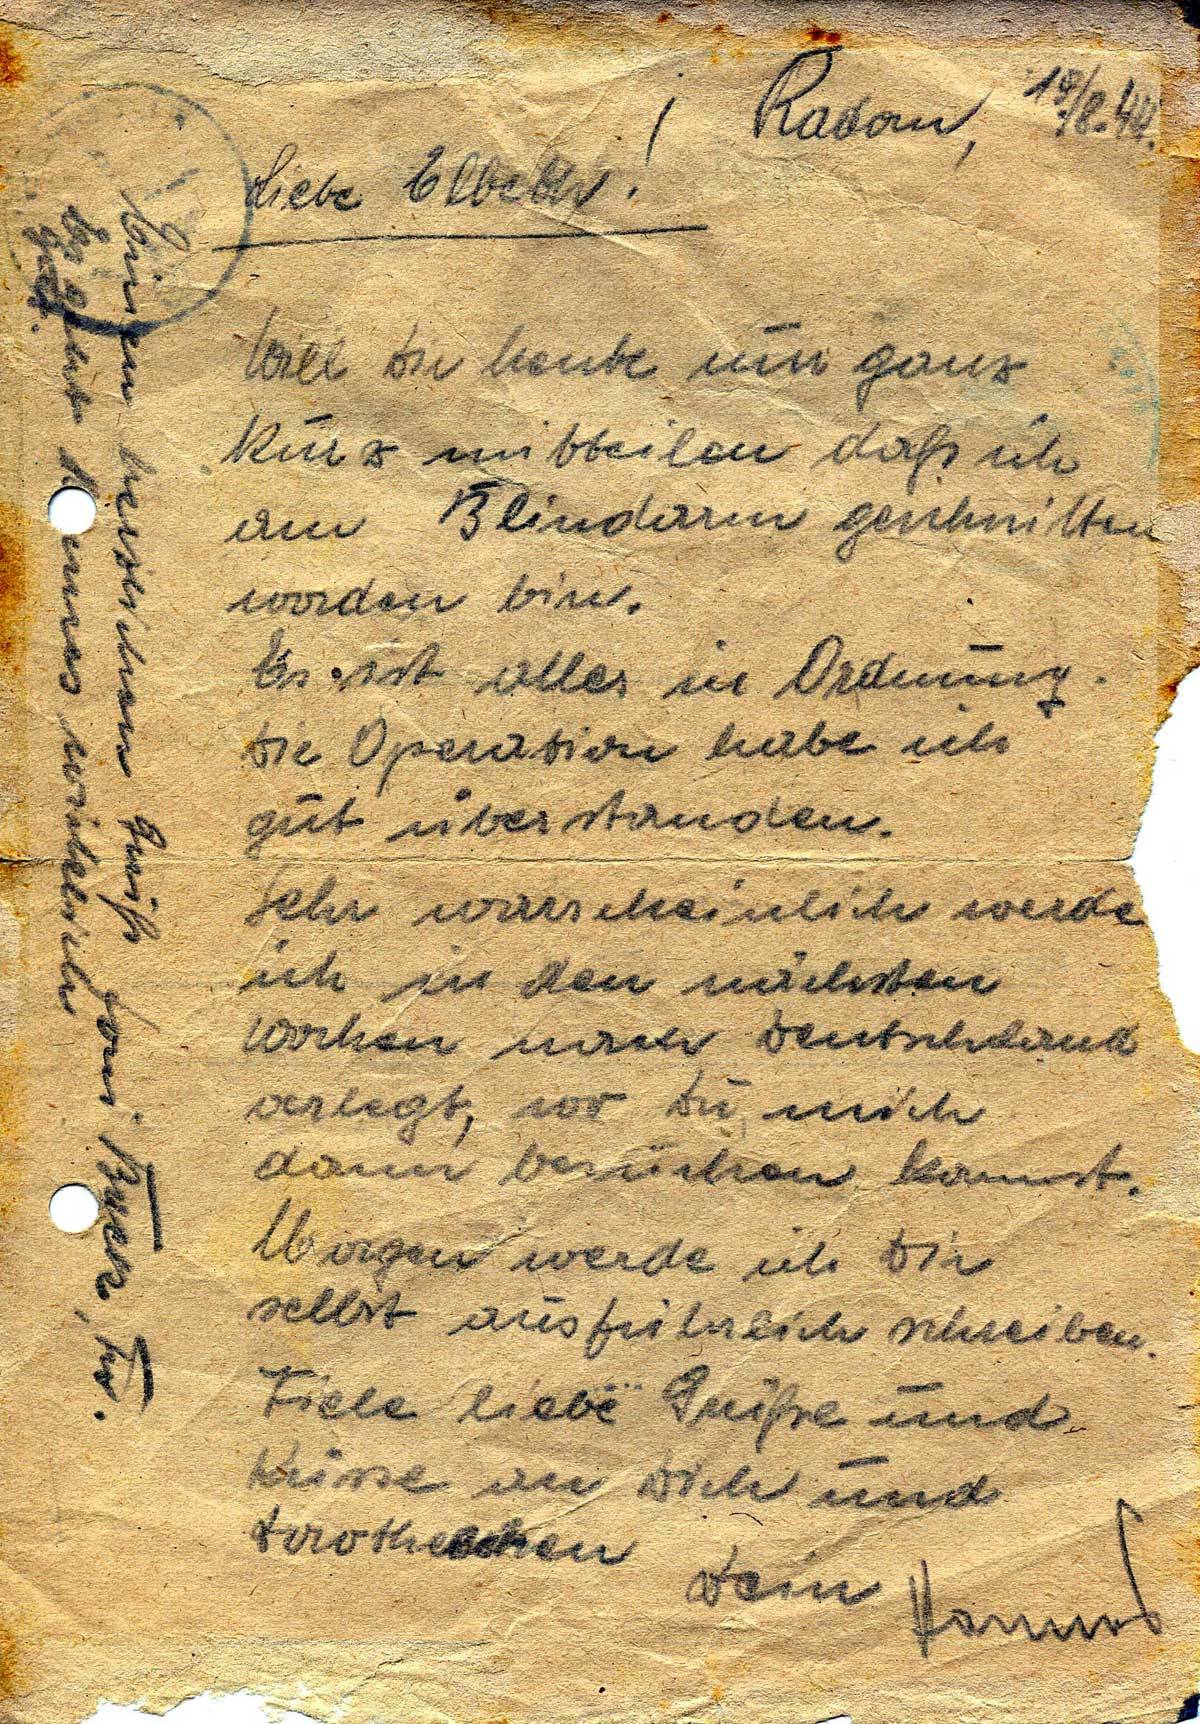 Radom, 18/8.44.
Liebe !
Will Dir heute nur ganz
kurz mitteilen daß ich
am Blindarm geschnitten
worden bin.
Es ist alles in Ordnung.
Die Operation habe ich
gut überstanden.
Sehr warscheinlich werde
ich in den nächsten
Wochen nach Deutschland
verlegt, wo Du mich
dann besuchen kannst.
Morgen werde ich Dir
selbst ausführlich schreiben.
Viele liebe Grüße und
Küsse an Dich und
Dorotheechen
Dein Hannes
Einen herzlichen Gruß von
Er hat wirklich